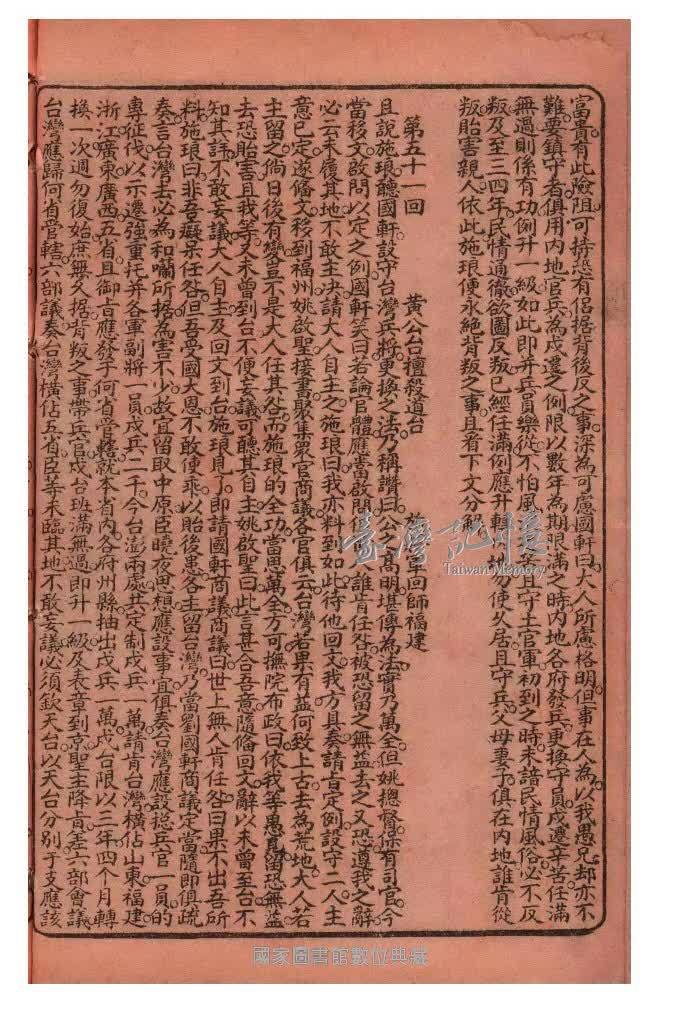 富貴有此險阻可持恐有侶据背後反之事深為可慮國軒曰大人所慮格明但事在人為以我愚兄却亦不
難要鎮守者俱用内地官兵為戍遷之例限以數年為期限滿之時内地各府發兵更換守員戍遷辛苦任滿
無過則係有功例升一級如此即弁兵員樂從不怕風 且守土官軍初到之時未諳民情風俗必不反
叛及至三四年民情通徹欲圖反叛已經任滿例應升轉 地
使久居且守兵父母妻子俱在内地誰肯從
叛貽害親人依此施琅便永絕背叛之事且看下文分解
第五十一回 黃公台擅殺道台 施 軍回師福建
且說施琅聽國軒設守台灣兵將更換之法乃稱讚曰公之高明堪傳為法實乃萬全但姚總督係有司官今
當移文啟問以定之例國軒笑曰若論官體應當啟問 誰肯任咎被恐留之無益去之又恐遵我之辭
必云未履其地不敢主决請大人自主之施琅曰我亦料到如此待他回文我方具奏請旨定例設守二人主
意已定遂偹文移到福州姚啟聖接書聚集衆官商議各官俱云台灣若果有益何致上古去為荒地大人若
主留之倘日後有變豈不是大人任其咎而施琅的全功當思萬全方可撫院布政曰依我等愚見留恐無益
去恐貽害且我等又未曾到台不便妄議可聽其自主姚啟聖曰此言甚合吾意隨偹回文辭以未曾至台不
知其詳不敢妄議大人自主及回文到台施琅見了即請國軒商議商議曰世上無人肯任咎曰果不出吾所
料施琅曰非吾癡呆任咎但吾受國大恩不敢使乘以貽後患各主留台灣乃當劉國軒商議定當隨即俱疏
奏言台灣去必為和囒所据為害不少故宜留取中原臣曉夜思想應設事宜俱奏台灣應設總兵官一員的
專征伐以示遷強重托并各軍副將一員戍兵二千今台澎兩處共定制戍兵一萬請肯台灣橫佔山東福建
浙江廣東廣西五省且御旨應發于何省管轄就本省内各府州縣抽出戍兵一萬戍台限以三年四個月轉
換一次週勿復始庶無久据背叛之事帶兵官戍台班滿無過即升一級及表章到京聖主降肯差六部會議
台灣應歸何省管轄六部議奏台灣橫佔五省臣等未臨其地不敢妄議必須欽天台以天台分別于支應該
臺灣記憶
Taiwan Memory
國家圖書館數位典藏